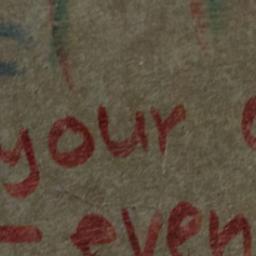 your
- even